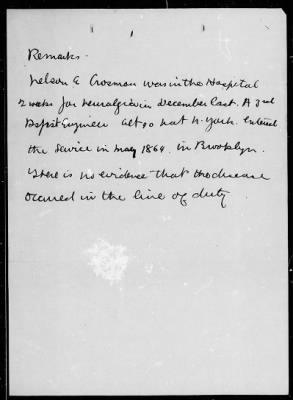 Remarks.
Nelson E Crosman was in the Hospital
2 weeks for neuralgia in December last. A 3rd
Asst Engineer aet 30 nat N. York. Entered
the service in May 1864. in Brooklyn.
There is no evidence that the disease
occured in the line of duty